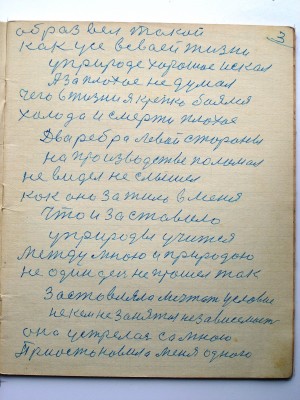 3
образ вел такой
как усе в своей жизни
у природе хорошое искал
Я за плохое не думал
чего в жизни я крепко боялся
холода и смерти плохое
Два ребра левой стороны
на производстве поломал
не видел не слышел
как оно зажило в меня
Что и заставило
у природы учится
Между мною и природою
не один день прошел так
Заставляла мечтат условие
некем не занятоя независемост
она устрелас со мною.
Приостоновило меня одного